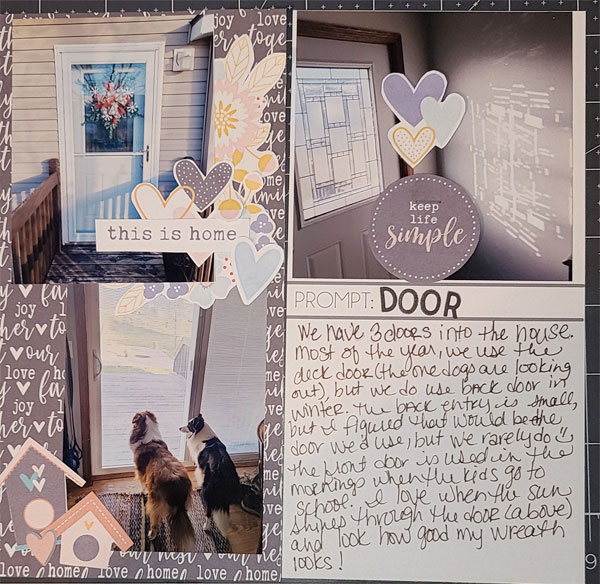 this is home
keep
life
simple
PROMPT: DOOR
We have 3 doors into the house.
Most of the year, we use the
deck door (the one dogs are looking
out), but we do use back door in
winter. The back entry is small,
but I figured that would be the
door we'd use, but we rarely do
The front door is used in the
mornings when the kids go to
school. I love when the sun
shines through the door (above)
and look how good my wreath
looks!